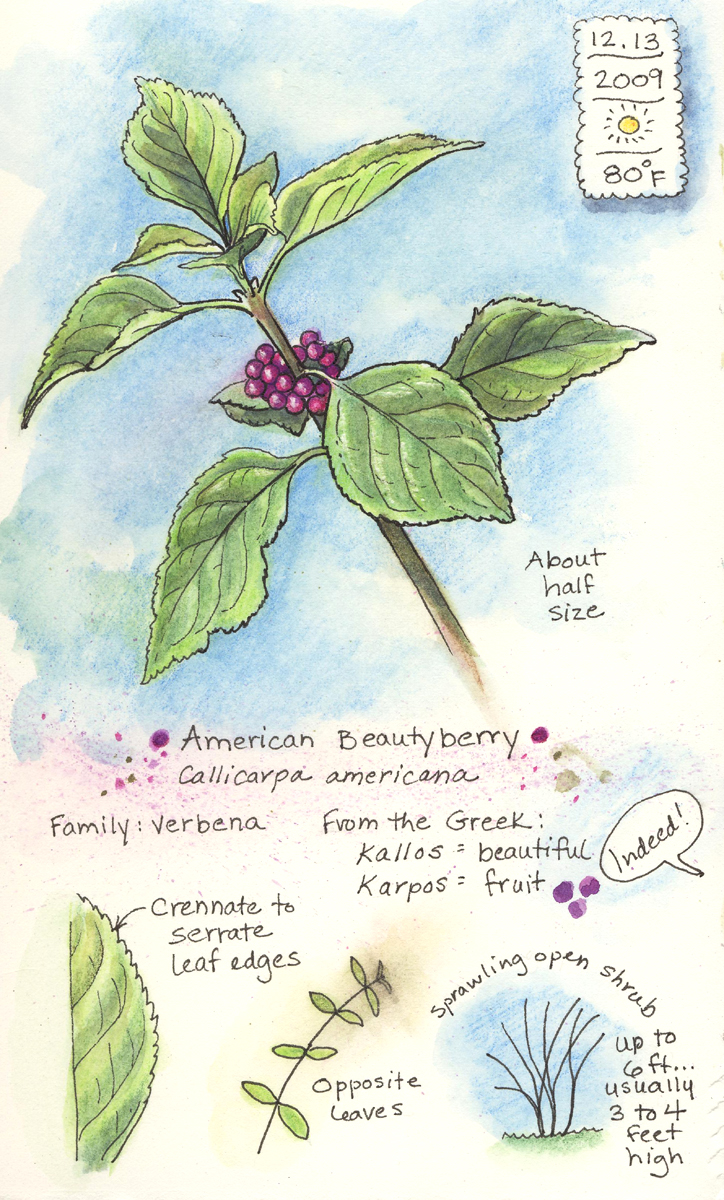 12.13
2009
80°F
About
half
size
American Beautyberry
Callicarpa americana
Family: Verbena
From the Greek:
Kallos = beautiful
Karpos = fruit
Indeed!
Crennate to
serrate
leaf edges
Opposite
leaves
Sprawling open shrub
up to
6 ft...
usually
3 to 4
feet
high